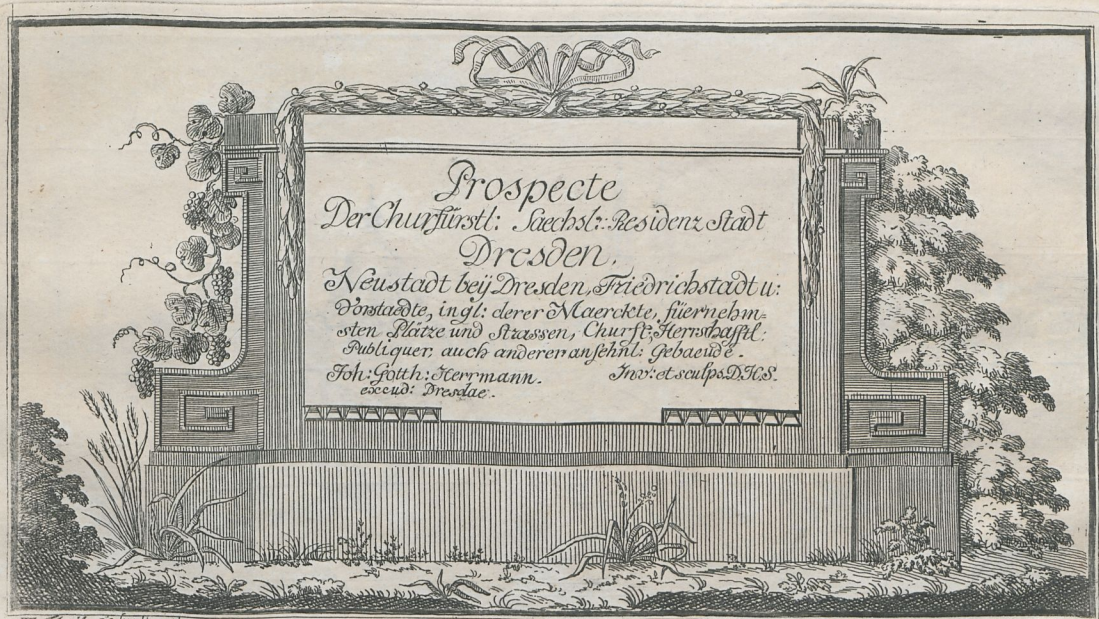 Prospecte
Der Churfürstl: Saechsl: Residenz Stadt
Dresden,
Neustadt beÿ Dresden, Friedrichstadt u:
Vorstaedte, ingl: derer Maerckte, füernehm-
sten Plätze und Strassen, Churfr: Herrschafftl:
Publiquer, auch anderer ansehnl: Gebaeude.
Joh: Gotth: Herrmann. Inv: et sculps. D.H.S.
excud: Dresdae.